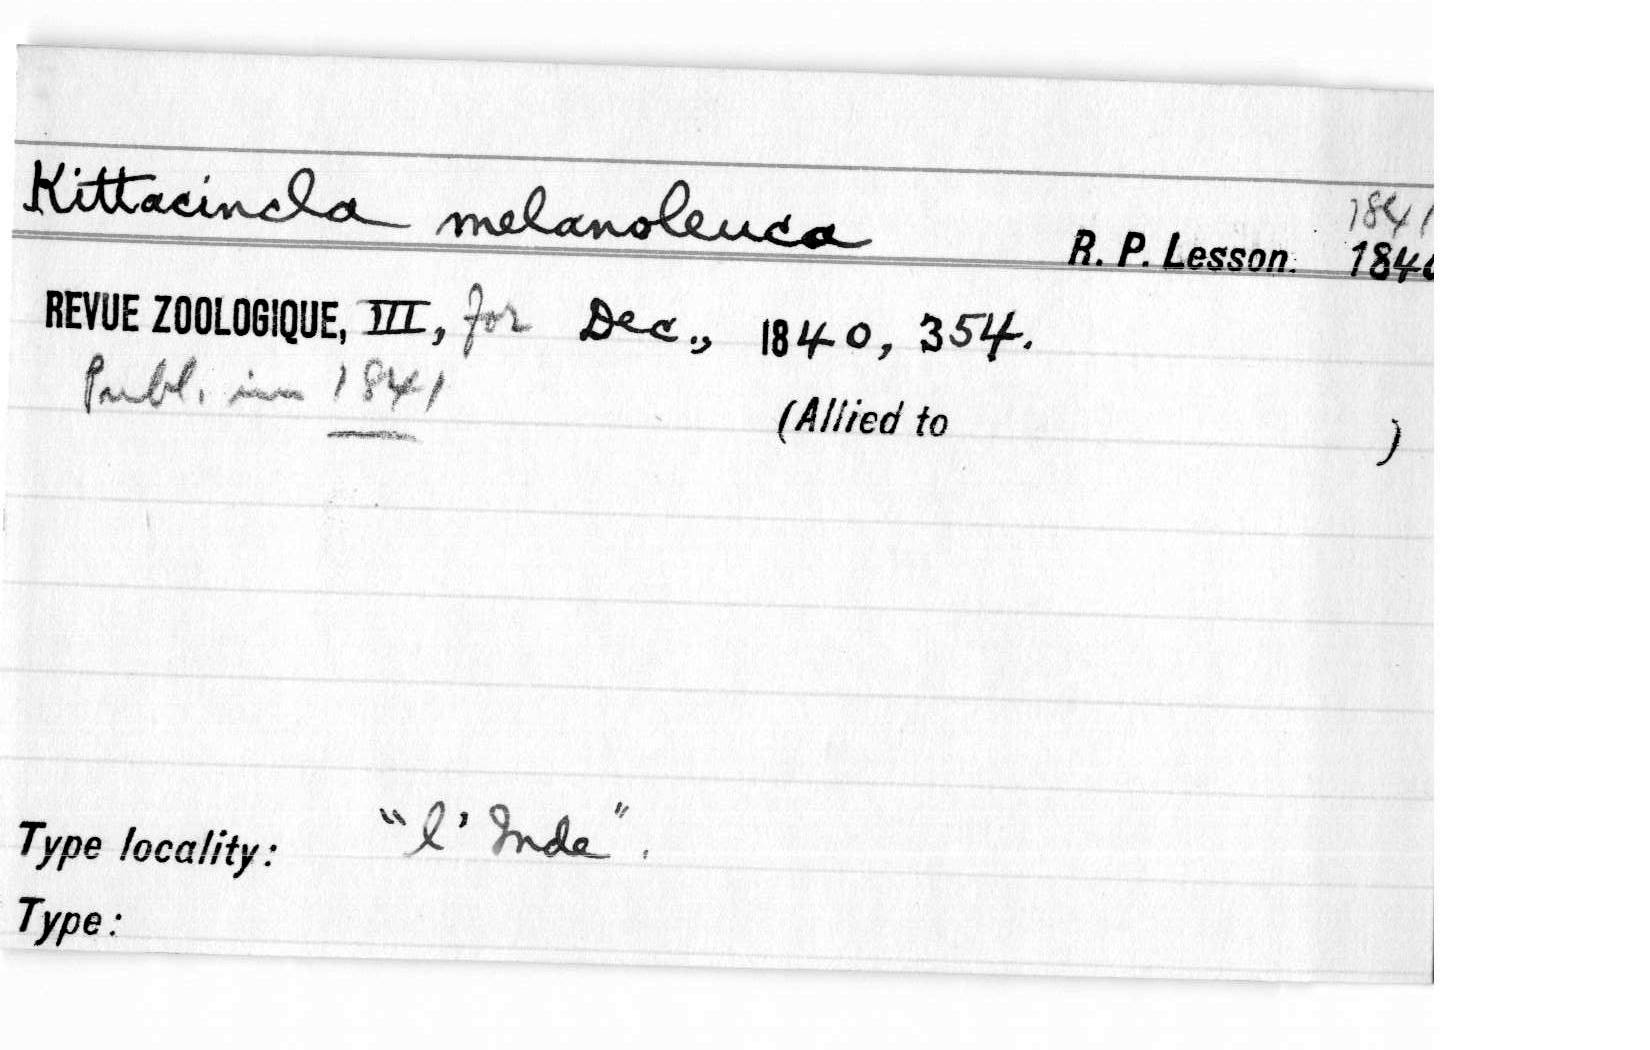 Kittacincla melanoleuca
1841
R. P. Lesson. 1840
REVUE ZOOLOGIQUE, III, for Dec., 1840, 354.
Publ. in 1841
(Allied to )
Type locality: "l'Inde".
Type: